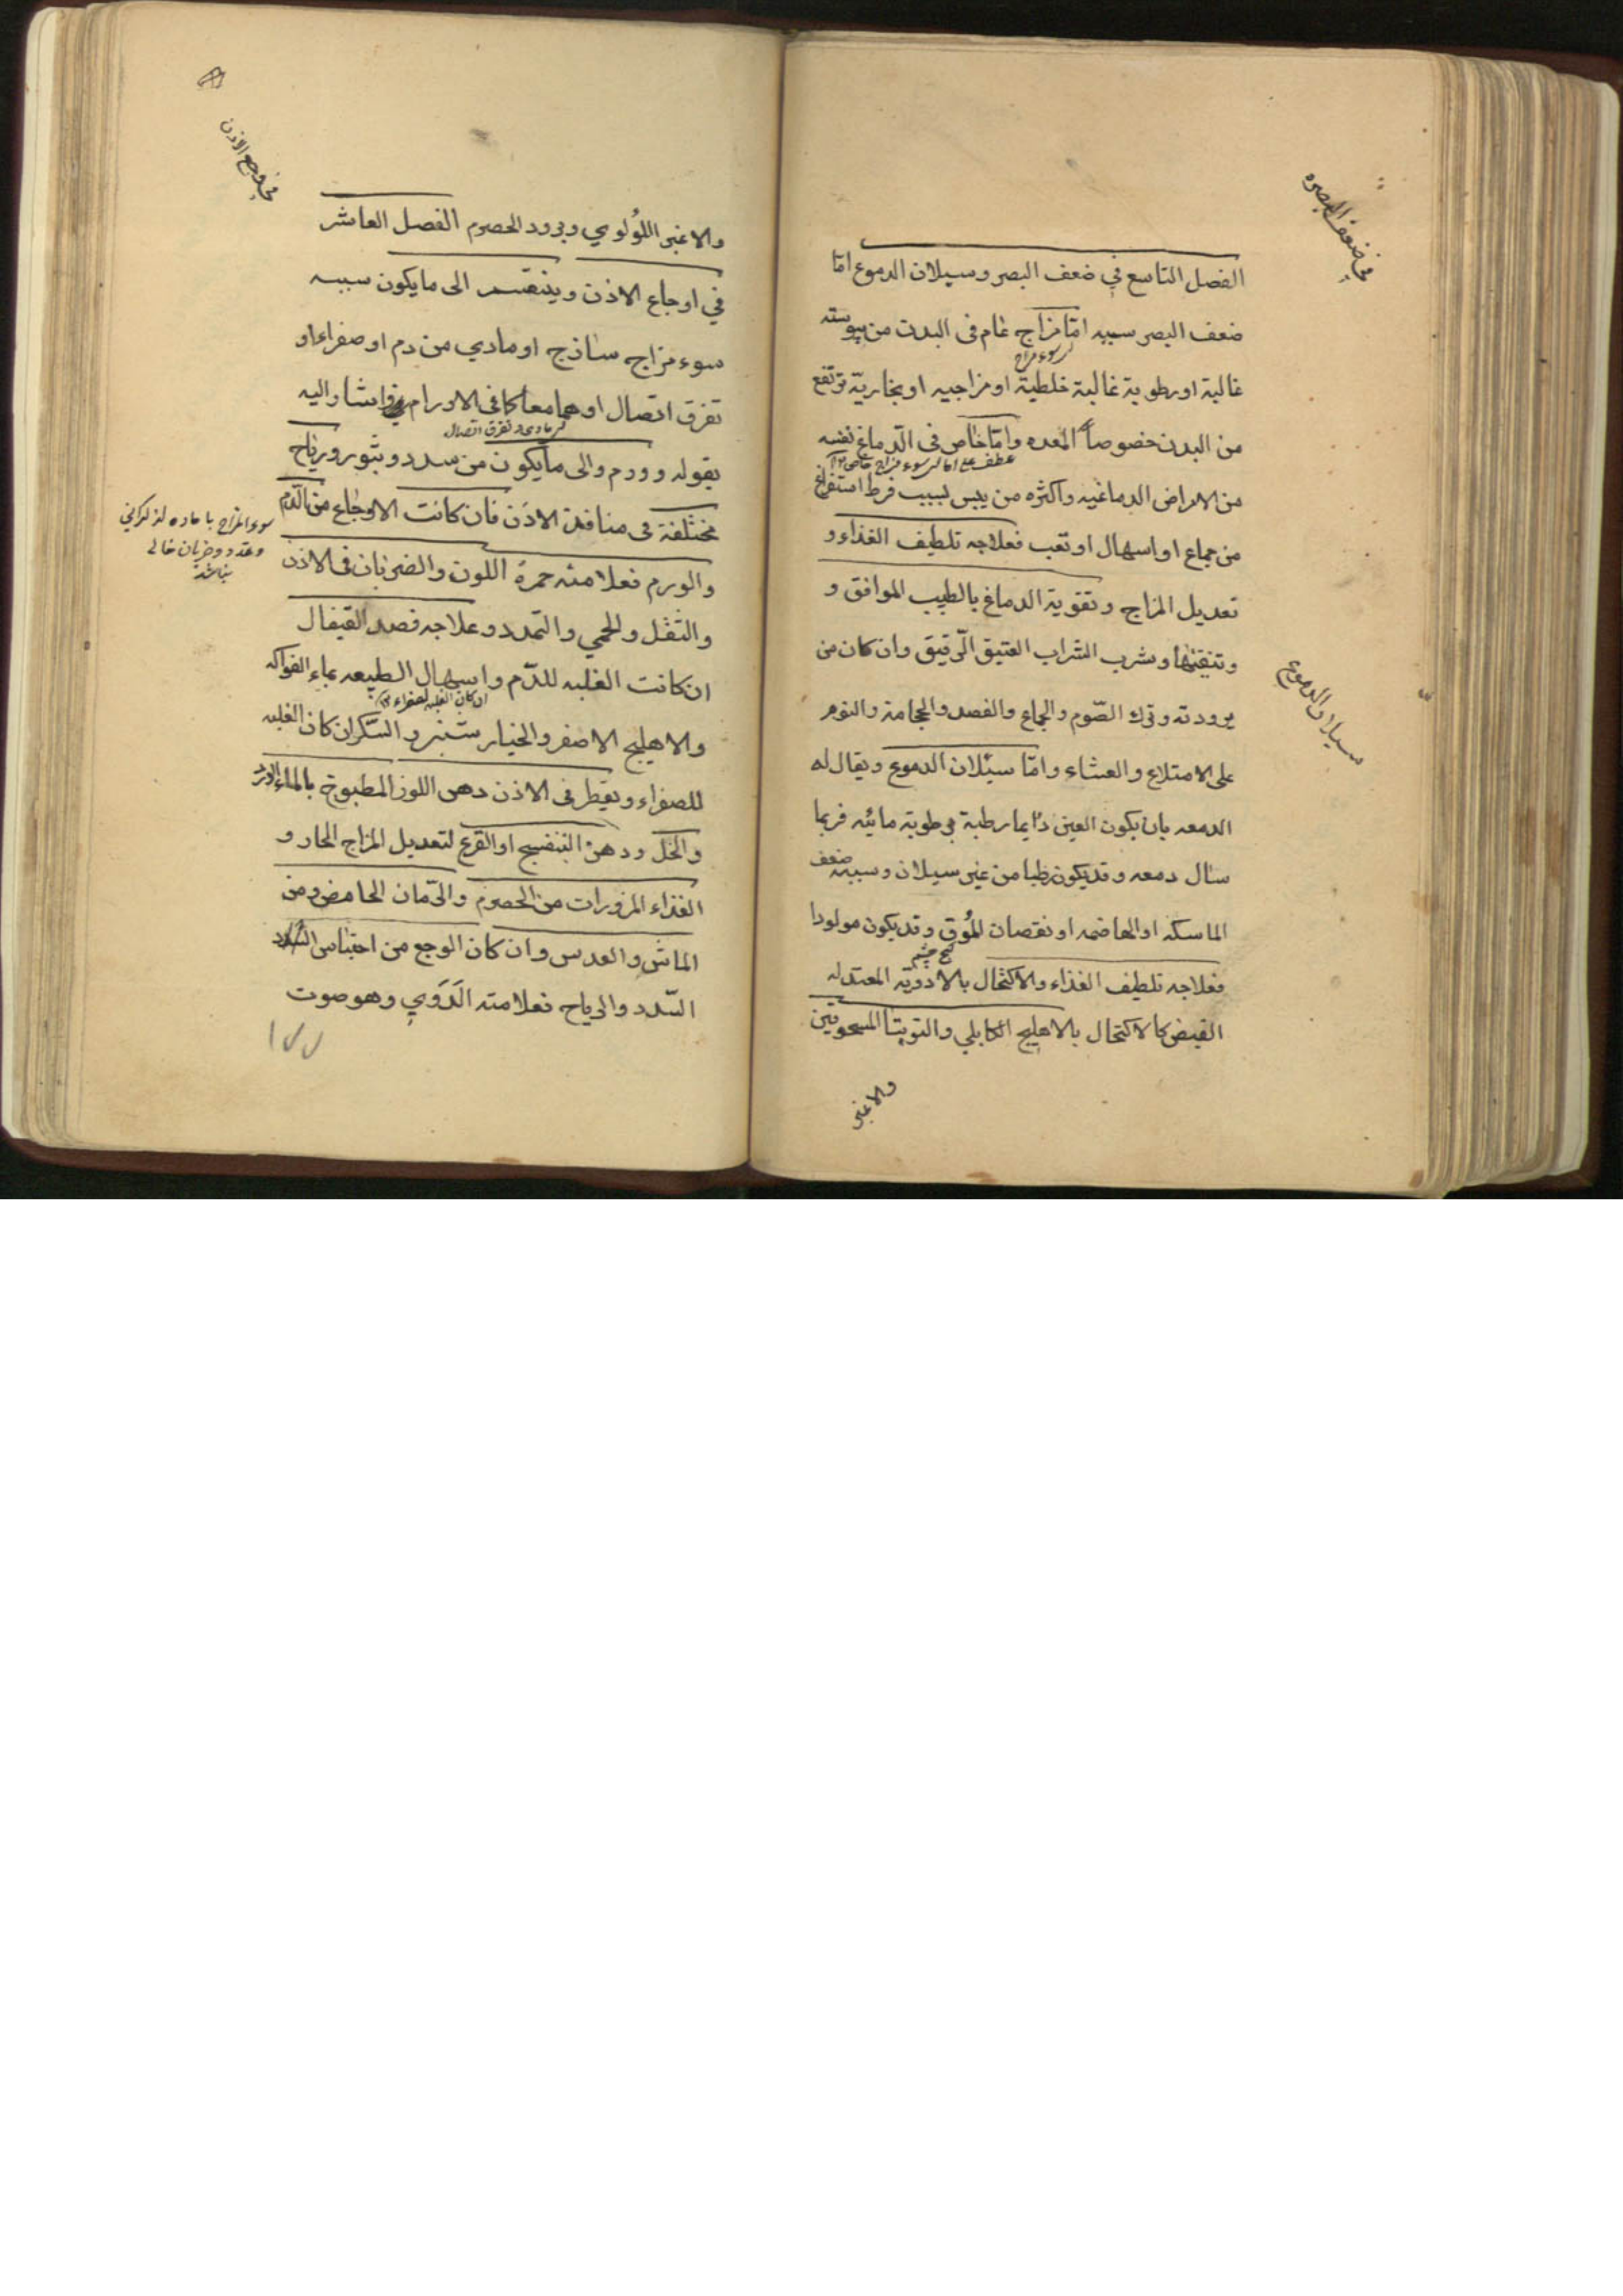 في ضعف البصر
الفصل التاسع في ضعف البصر وسيلان الدموع امّا
ضعف البصر سببه امّا مزاج عام فى البدن من يبوسته
سوء مزاج
غالبة او رطوبة غالبة خلطية او مزاجيه او بخاريّة ترتفع
من البدن خصوصاً المعده وامّا خاص فى الدّماغ نفسه
عطف على اما سوء مزاج
من الامراض الدماغيه واكثره من يبس بسبب فرط استفراغ
من جماع او اسهال او تعب فعلاجه تلطيف الغذاء و
تعديل المزاج وتقوية الدماغ بالطيب الموافق و
وتنقيتها وشرب الشراب العتيق الرّقيق وان كان من
سيلان الدموع
برودته وترك الصّوم والجماع والفصد والحجامة والنوم
على الامتلاع والعشاء وامّا سيلان الدموع ويقال له
الدمعه بان يكون العين دايما رطبة برطوبة مائيّه فربما
سال دمعه وقد يكون رطبا من غير سيلان وسببه ضعف
الماسكه او الهاضمه او نقصان المُوق وقد يكون مولودا
فعلاجه تلطيف الغذاء والاكتحال بالادوية المعتدله
القبض كالاكتحال بالاهليج الكابلي والتوتيا المسحوقين
والاغبر
في وجع الاذن
والاغبر اللوُلوي وبرود الحصرم الفصل العاشر
في اوجاع الاذن وينقسم الى ما يكون سببه
سوء مزاج ساذج او مادي من دم او صفراء او
تفرق اتصال او هما معا كما فى الاورام واشار اليه
مادى وتفرق اتصال
بقوله وورم والى ما يكون من سدد وبثور ورياح
مختلفة فى منافذ الاذن فان كانت الاوجاع من الدّم
سوء المزاج با ماده از كرانى
وتمدد وضربان خالى
نباشد
والورم فعلامته حمرة اللون والضربان فى الاذن
والثقل والحمي والتمدد وعلاجه فصد القيفال
ان كانت الغلبه للدّم واسهال الطبيعه بماء الفواكه
ان كان الغلبه لصفراء
والاهليج الاصفر والخيار شنبر والسّكر ان كان الغلبه
للصفراء ويقطر فى الاذن دهن اللوز المطبوخ بالماء
والخل ودهن البنفسج او القرع لتعديل المزاج الحار و
الغذاء المزورات من الحصرم والرّمان الحامض ومن
الماش والعدس وان كان الوجع من احتباس
السّدد والرياح فعلامته الدَوي وهو صوت
١٧٧